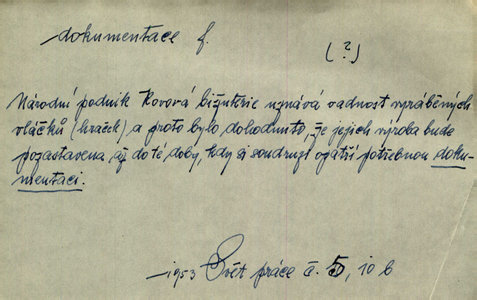 dokumentace f.
(?)
Národní podnik Kovová bižuterie uznává vadnost vyráběných
vláčků (hraček) a proto bylo dohodnuto, že jejich výroba bude
pozastavena až do té doby, kdy si soudruzi opatří potřebnou doku-
mentaci.
1953 Svět práce č. 50, 10 b